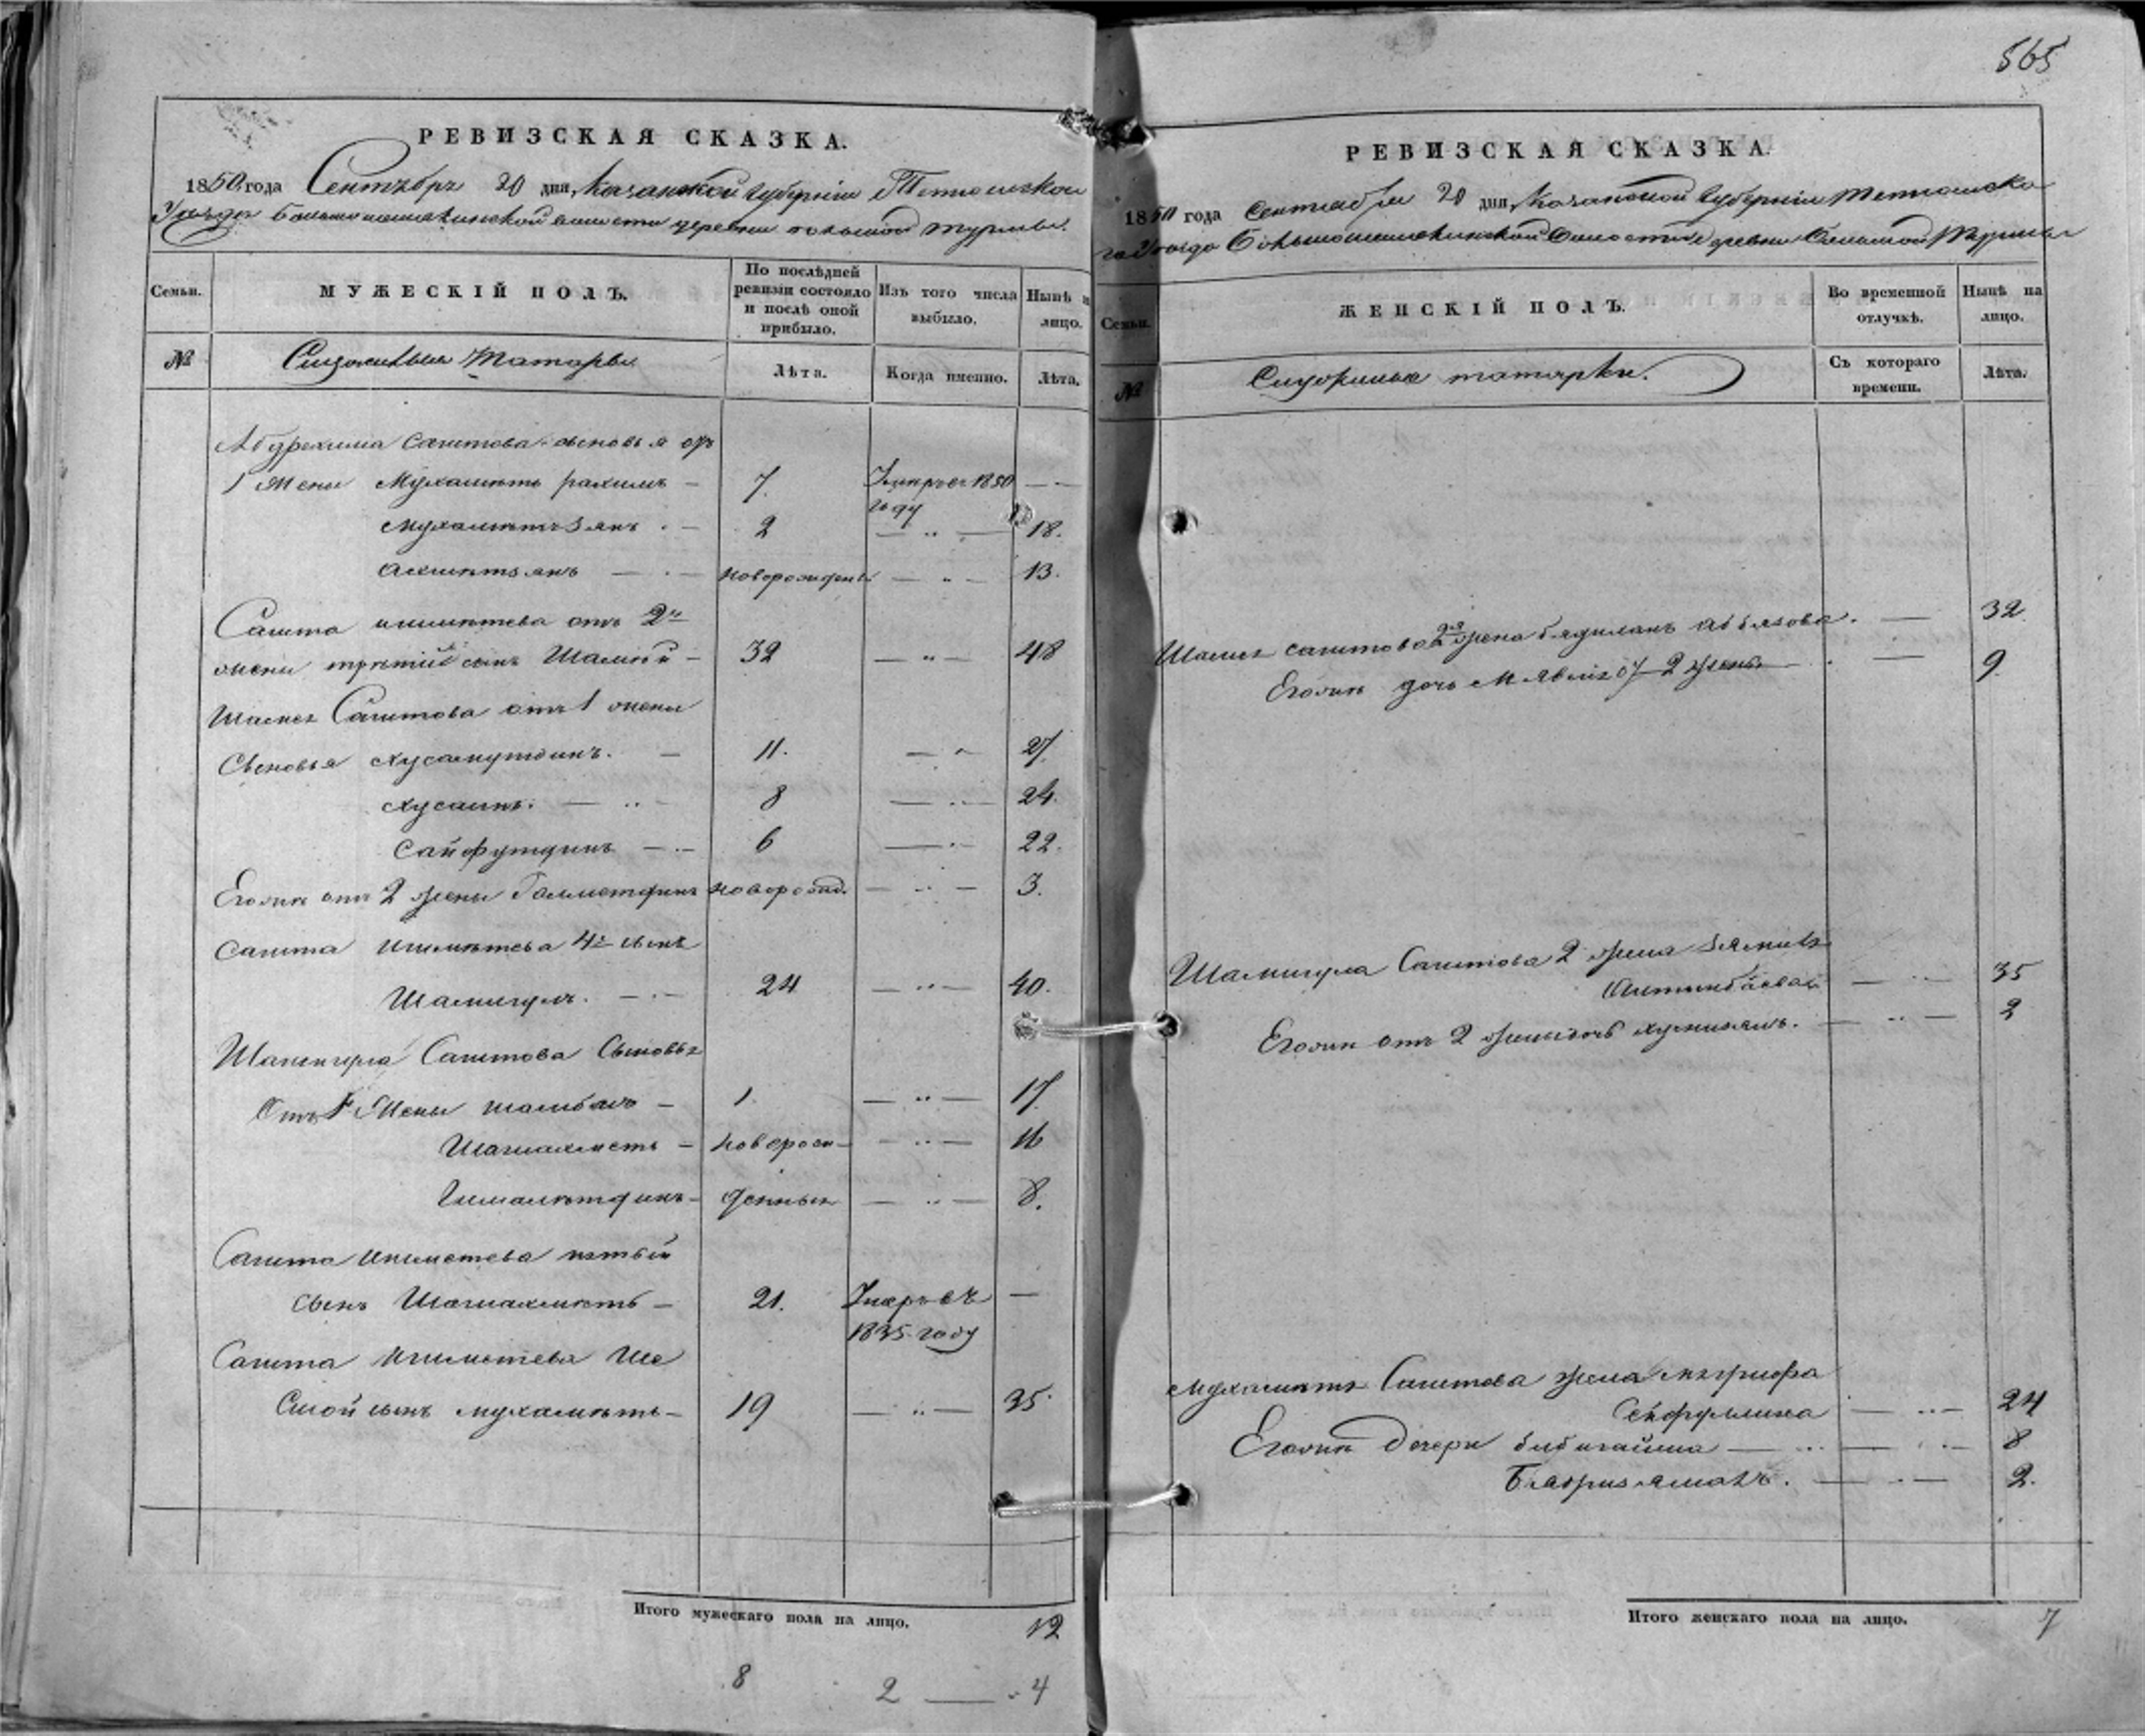 565
РЕВИЗСКАЯ СКАЗКА.
1850 года Сентября 20 дня Казанской Губернiи Тетюшскаго
Уезда Большешемякинской волости деревни большой Турмы.
Семьи.
МУЖЕСКІЙ ПОЛЪ.
По послѣдней ревизіи состояло и послѣ оной прибыло.
Изъ того числа выбыло.
Нынѣ на лицо.
№
Татары
Лѣта.
Когда именно.
Лѣта.
Абдрехима Сагитова сыновья отъ
1 жены Мухаметь рахимъ — 7. Умеръ въ 1850 году —
Мухаметьзянъ — 2 — 18.
Ахметзянъ — новорожденъ — 13.
Сагита ишметева отъ 2й
жены третiй сынъ Шамсей — 32 — 48
Шамся Сагитова отъ 1 жены
Сыновья Хусамутдинъ. — 11. — 27
Хусаинъ. — 8 — 24.
Сайфутдинъ — 6 — 22.
Его же отъ 2 жены новорожд. — 3.
Сагита ишметева 4й сынъ
Шамигулъ. — 24 — 40.
Шамигула Сагитова Сыновья
Отъ 1 Жены — 1. — 17
Шагиахметь — новорож — 16
Гималетдинъ — денныя — 8.
Сагита ишметева пятый
сынъ Шагиахметь — 21. Умеръ въ 1835 году —
Сагита ишметева Ше
стой сынъ мухаметь — 19 — 35.
Итого мужескаго пола на лицо. 12
8 2 — 4
РЕВИЗСКАЯ СКАЗКА.
1850 года Сентября 20 дня Казанской Губернiи Тетюшска
го Уезда Большешемякинской Волости деревни Большой Турмы
Семьи.
ЖЕНСКІЙ ПОЛЪ.
Во временной отлучкѣ.
Нынѣ на лицо.
№
татарки.
Съ котораго времени.
Лѣта.
Шамся Сагитова 2я жена Абзязова. — 32
Его же дочь отъ 2 жены — 9.
Шамигула Сагитова 2 жена
— 35
Его же отъ 2 жены дочь — 2
Мухаметя Сагитова жена
Сейфуллина — 24
Его же Дочери бибигайша — 8
— 2.
Итого женскаго пола на лицо. 7